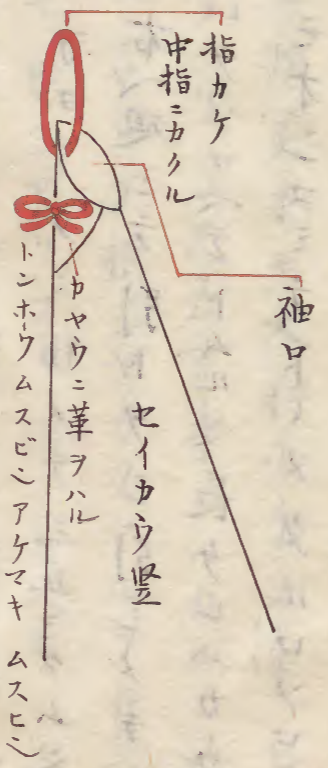 指カケ
中指ニカクル
袖口
セイカウ竪
カヤウニ革ヲハル
トンホウムスビ〆アケマキ ムスヒ〆